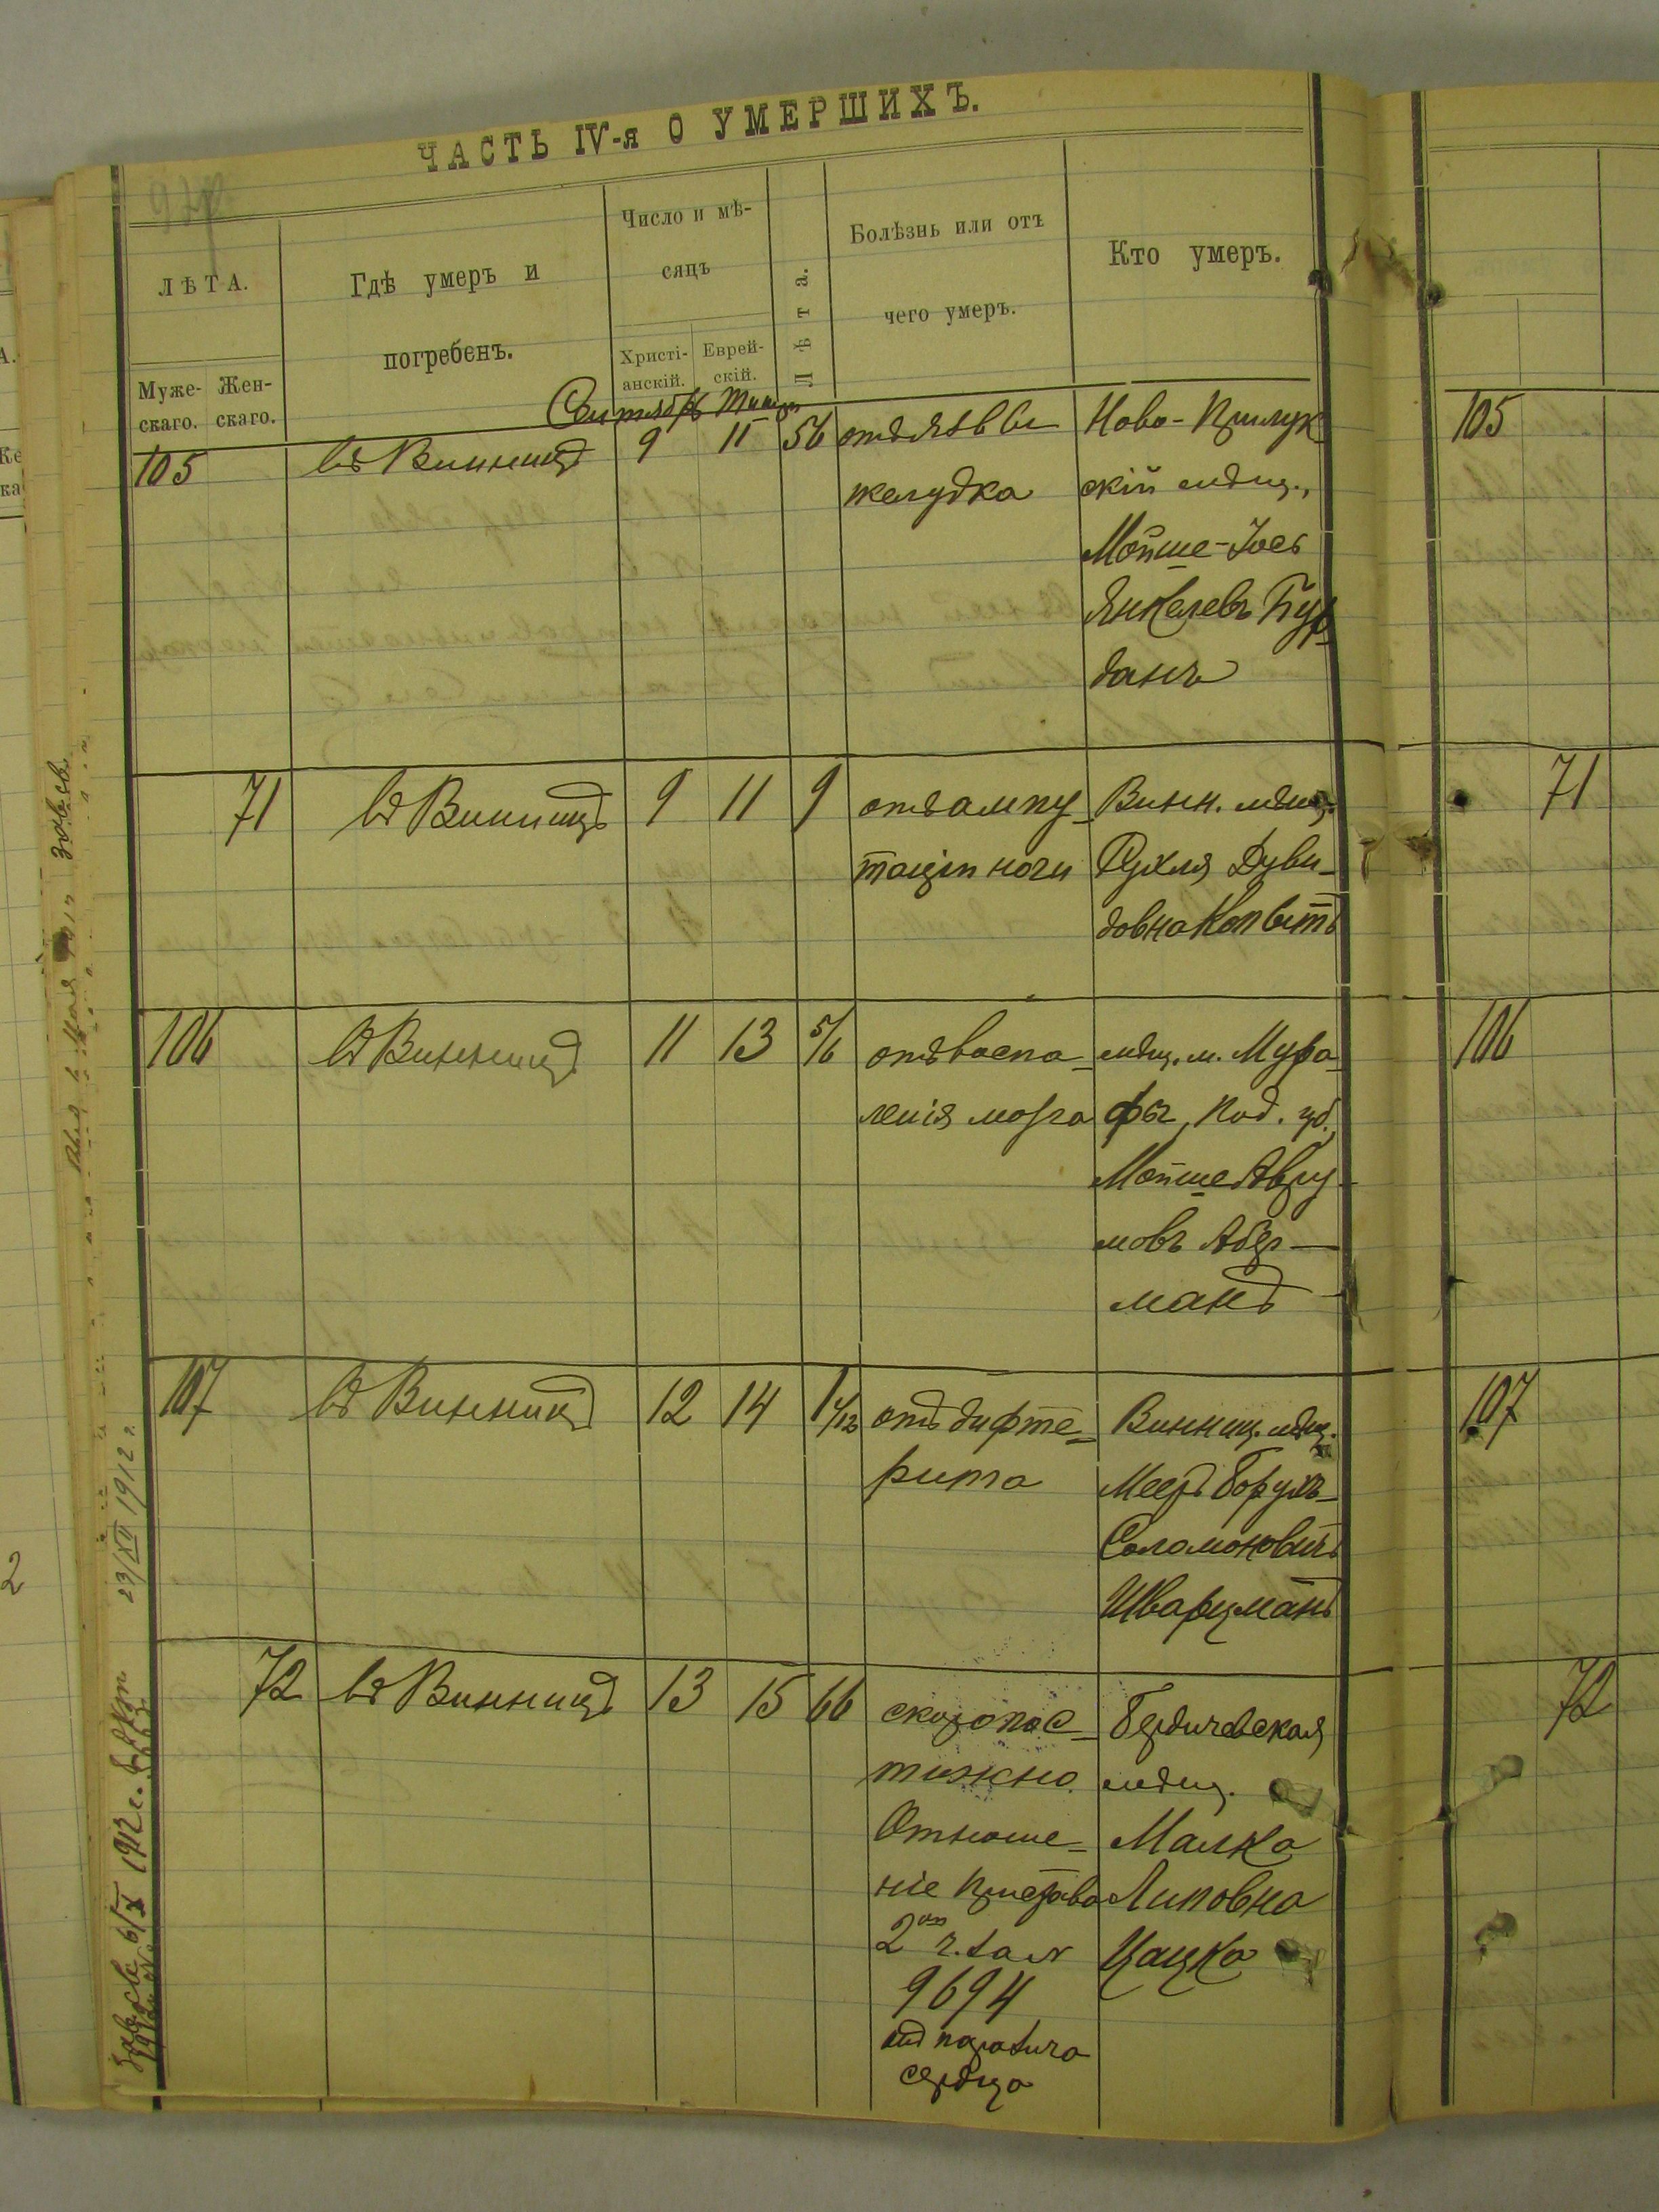 ЧАСТЬ IV-я О УМЕРШИХЪ.
ЛѢТА.
Муже-
скаго.
Жен-
скаго.
Гдѣ умеръ и
погребенъ.
Число и мѣ-
сяцъ
Христі-
анскій.
Еврей-
скій.
Лѣта.
Болѣзнь или отъ
чего умеръ.
Кто умеръ.
Сентябрь Тишри
105
въ Винницѣ
9
11
56
отъ язвы
желудка
Ново-Прилук
скій мѣщ.,
Мойше-Іось
Янкелевъ Бур-
данъ
105
71
въ Винницѣ
9
11
9
отъ ампу-
таціи ноги
Винн. мѣщ.
Рухля Дуви-
довна Копытъ
71
106
въ Винницѣ
11
13
5/6
отъ воспа-
ленія мозга
мѣщ. м. Мура-
фы, Под. губ.,
Мойше Авру-
мовъ Абер-
манъ
106
107
въ Винницѣ
12
14
1 1/12
отъ дифте-
рита
Винниц. мѣщ.
Мееръ Борухъ-
Соломоновичъ
Шварцманъ
107
72
въ Винницѣ
13
15
66
скоропос-
тижно.
Отноше-
ніе Пристава
2ой ч. за №
9694
отъ паралича
сердца
Бердичевская
мѣщ.
Малка
Липовна
Цацка
72
23/XII 1912 г.
6/X 1912 г.
2